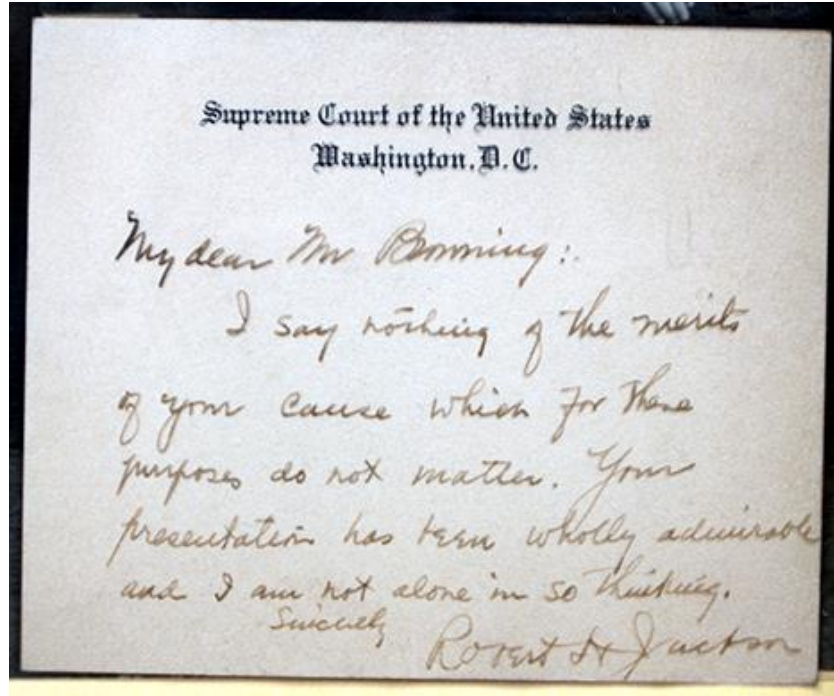 Supreme Court of the United States
Washington, D.C.
My dear Mr Browning:
I say nothing of the merits
of your cause which for these
purposes do not matter. Your
presentation has been wholly admirable
and I am not alone in so thinking.
Sincerely
Robert H Jackson